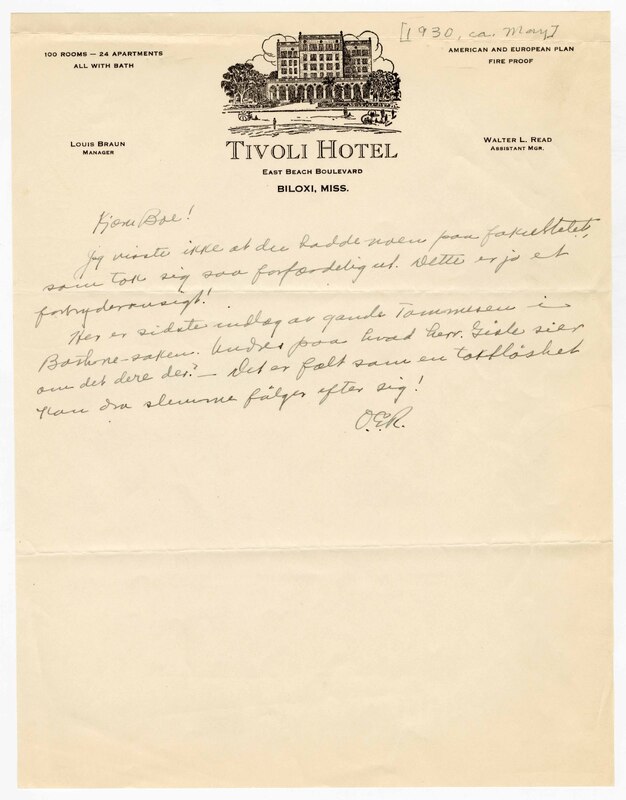 [1930, ca. May]
100 ROOMS — 24 APARTMENTS
ALL WITH BATH
AMERICAN AND EUROPEAN PLAN
FIRE PROOF
LOUIS BRAUN
MANAGER
WALTER L. READ
ASSISTANT MGR.
TIVOLI HOTEL
EAST BEACH BOULEVARD
BILOXI, MISS.
Kjære Boe!
Jeg visste ikke at du hadde noen paa fakultetet,
som tok sig saa forfærdelig ut. Dette er jo et
forbryderansigt!
Her er sidste indlæg av gamle Tommesen i
saken. Undres paa hvad herr. Gisle sier
om det dere der? — Det er fælt som en taktløshet
kan dra slemme følger efter sig!
O.E.R.